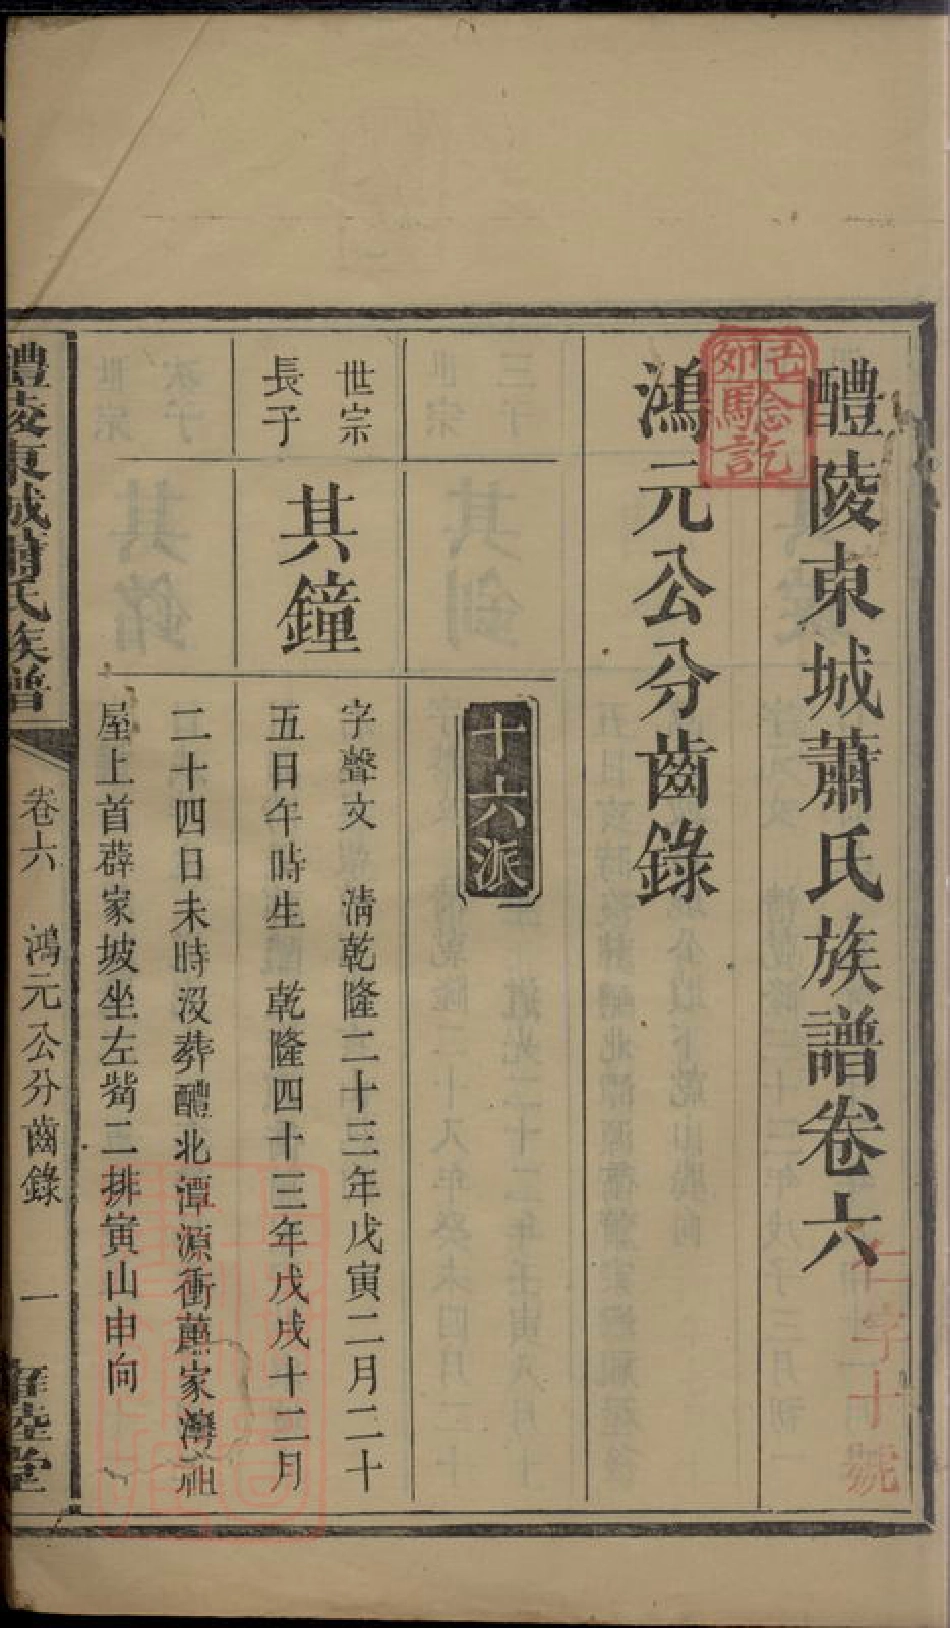 醴陵東城蕭氏族譜卷六
仁字十號
鴻元公分齒錄
十六派
世宗
長子
其鐘
字聲文 清乾隆二十三年戊寅二月二十
五日午時生 乾隆四十三年戊戌十二月
二十四日未時没葬醴北潭源衝蕭家灣祖
屋上首薜家坡坐左觜二排寅山申向
醴陵東城蕭氏族譜
卷六 鴻元公分齒錄 一